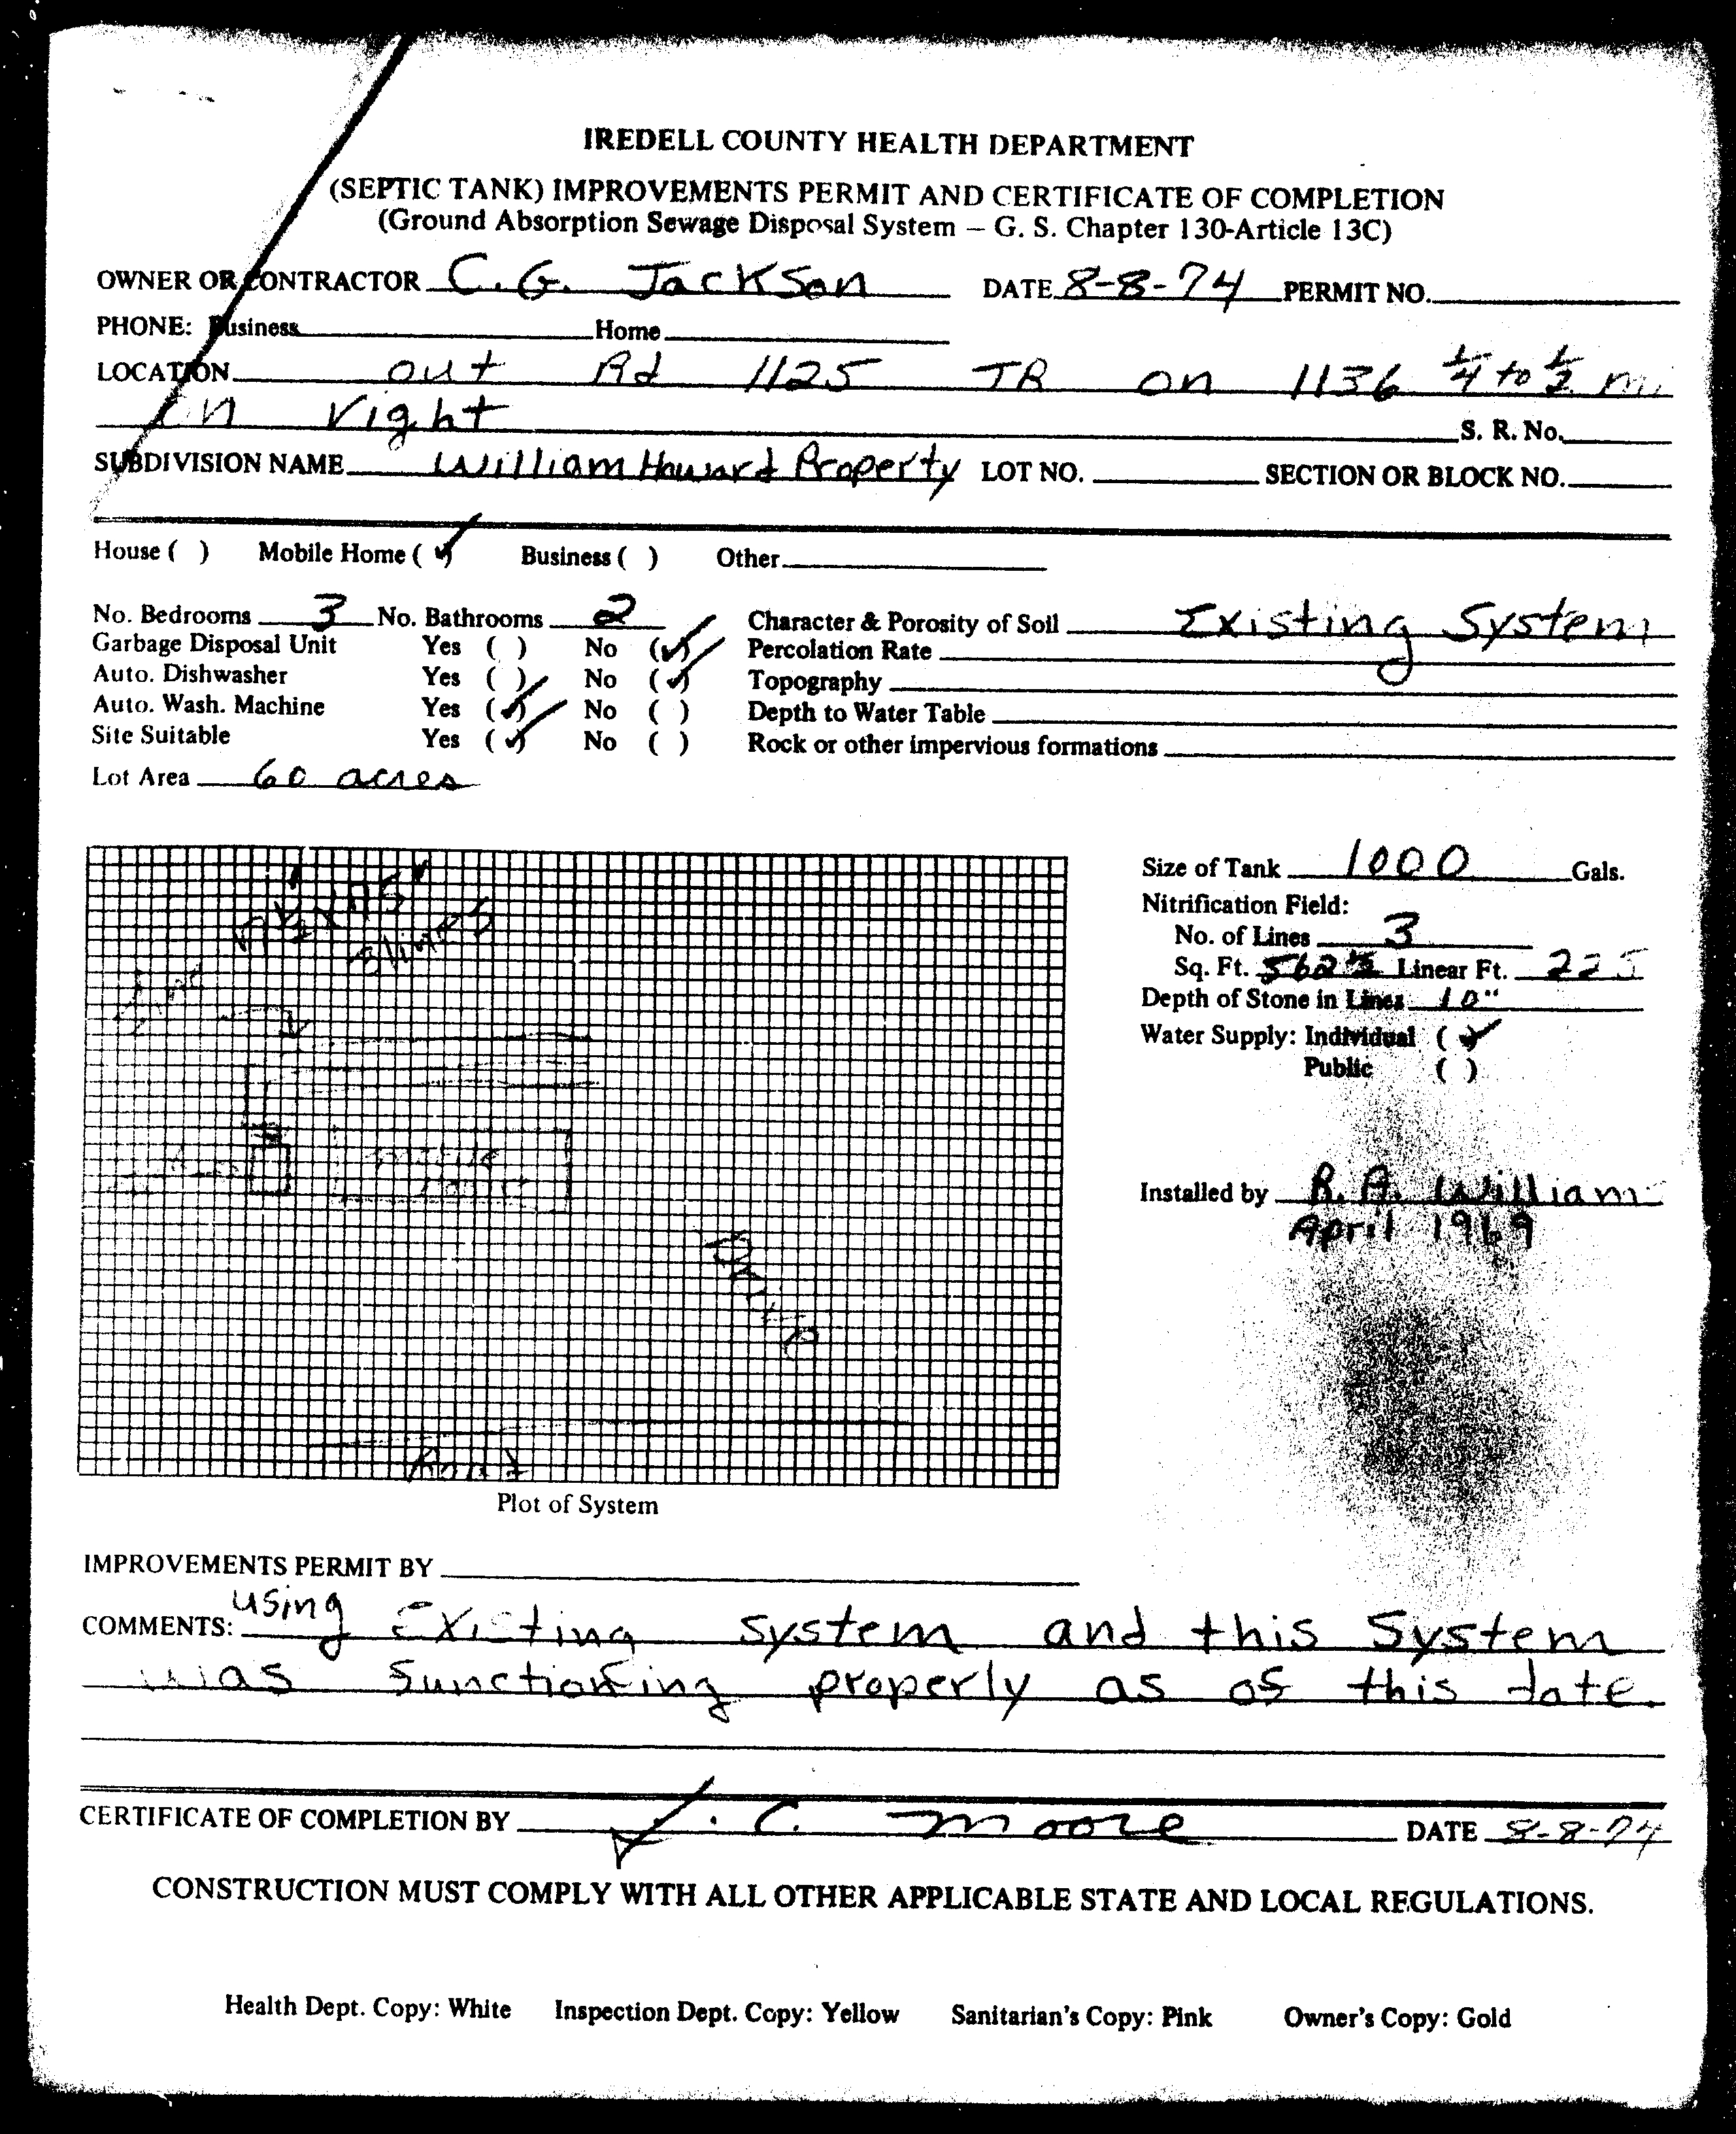 IREDELL COUNTY HEALTH DEPARTMENT
(SEPTIC TANK) IMPROVEMENTS PERMIT AND CERTIFICATE OF COMPLETION
(Ground Absorption Sewage Disposal System – G. S. Chapter 130-Article 13C)
OWNER OR CONTRACTOR C. G. Jackson DATE 8-8-74 PERMIT NO.
PHONE: Business Home
LOCATION out Rd 1125 TR on 1136 1/4 to 1/2 mi.
on right S. R. No.
SUBDIVISION NAME William Howard Property LOT NO. SECTION OR BLOCK NO.
House ( ) Mobile Home (✓) Business ( ) Other
No. Bedrooms 3 No. Bathrooms 2 Character & Porosity of Soil Existing System
Garbage Disposal Unit Yes ( ) No (✓) Percolation Rate
Auto. Dishwasher Yes ( ) No (✓) Topography
Auto. Wash. Machine Yes (✓) No ( ) Depth to Water Table
Site Suitable Yes (✓) No ( ) Rock or other impervious formations
Lot Area 60 acres
Size of Tank 1000 Gals.
Nitrification Field:
No. of Lines 3
Sq. Ft. 562 1/2 Linear Ft. 225
Depth of Stone in Lines 10"
Water Supply: Individual (✓)
Public ( )
Installed by R. A. William
April 1969
3 lines
Road
Plot of System
IMPROVEMENTS PERMIT BY
COMMENTS: using Existing system and this System
was functioning properly as of this date.
CERTIFICATE OF COMPLETION BY J. C. Moore DATE 8-8-74
CONSTRUCTION MUST COMPLY WITH ALL OTHER APPLICABLE STATE AND LOCAL REGULATIONS.
Health Dept. Copy: White Inspection Dept. Copy: Yellow Sanitarian's Copy: Pink Owner's Copy: Gold